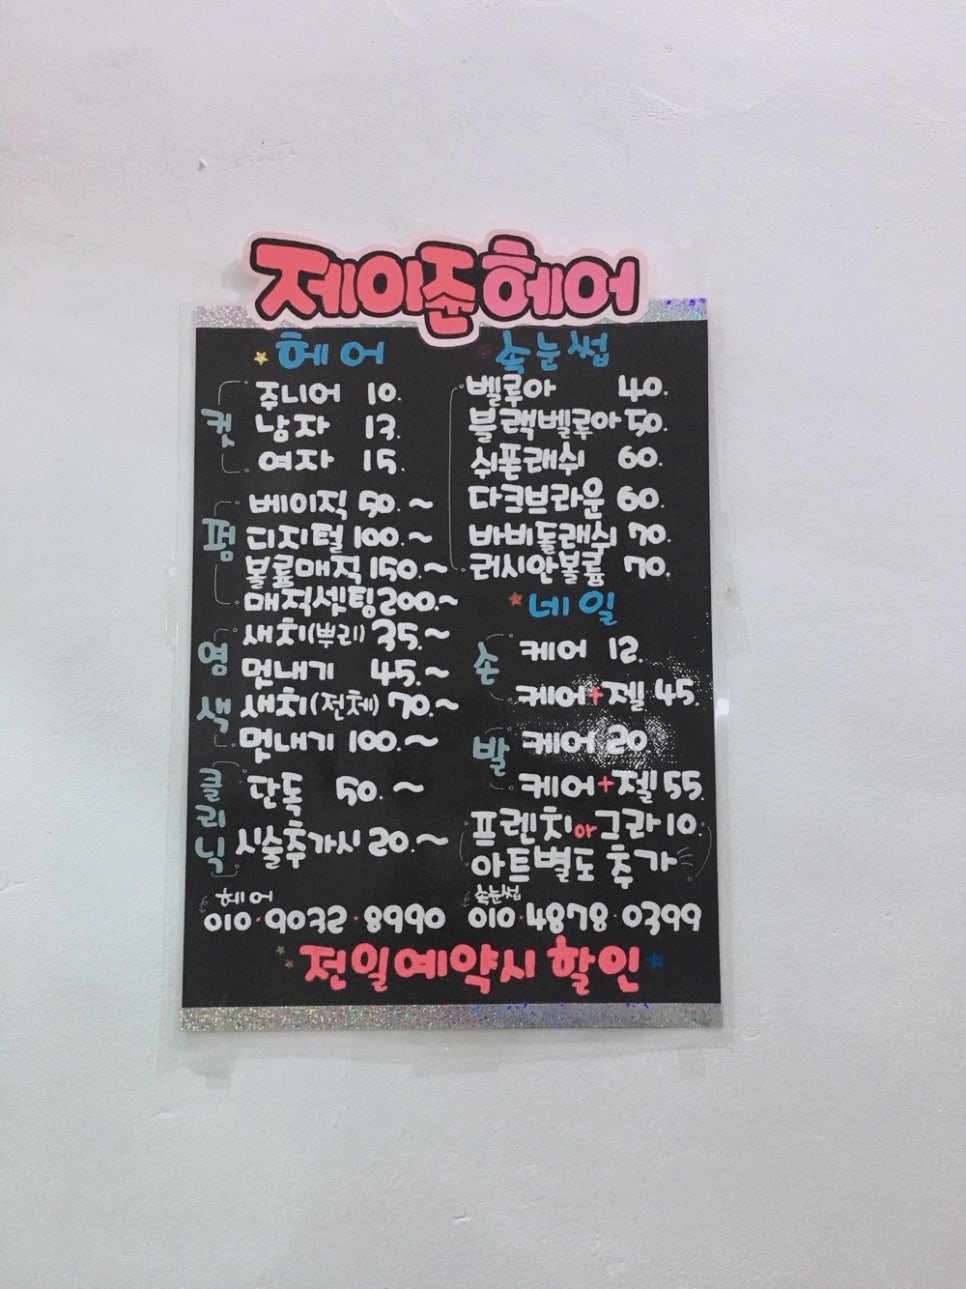 제이준헤어
헤어
컷
주니어 10.
남자 13.
여자 15.
펌
베이직 50.~
디지털 100.~
볼륨매직 150.~
매직셋팅 200.~
염색
새치(뿌리) 35.~
멋내기 45.~
새치(전체) 70.~
멋내기 100.~
클리닉
단독 50.~
시술추가시 20.~
헤어
010·9032·8990
속눈썹
벨루아 40.
블랙벨루아 50.
쉬폰래쉬 60.
다크브라운 60.
바비돌래쉬 70.
러시안볼륨 70.
네일
손
케어 12.
케어+젤 45.
발
케어 20
케어+젤 55.
프렌치or그라 10.
아트별도 추가
속눈썹
010·4878·0399
전일예약시 할인